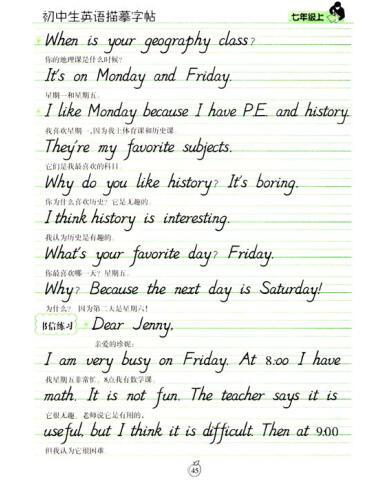 初中生英语描摹字帖
七年级上
When is your geography class?
你的地理课是什么时候?
It's on Monday and Friday.
星期一和星期五.
I like Monday because I have P.E. and history.
我喜欢星期一,因为我上体育课和历史课.
They're my favorite subjects.
它们是我最喜欢的科目.
Why do you like history? It's boring.
你为什么喜欢历史? 它是无趣的.
I think history is interesting.
我认为历史是有趣的.
What's your favorite day? Friday.
你最喜欢哪一天? 星期五.
Why? Because the next day is Saturday!
为什么? 因为第二天是星期六!
书信练习 Dear Jenny,
亲爱的珍妮:
I am very busy on Friday. At 8:00 I have
我星期五非常忙. 8点我有数学课.
math. It is not fun. The teacher says it is
它很无趣. 老师说它是有用的,
useful, but I think it is difficult. Then at 9:00
但我认为它很困难.
45